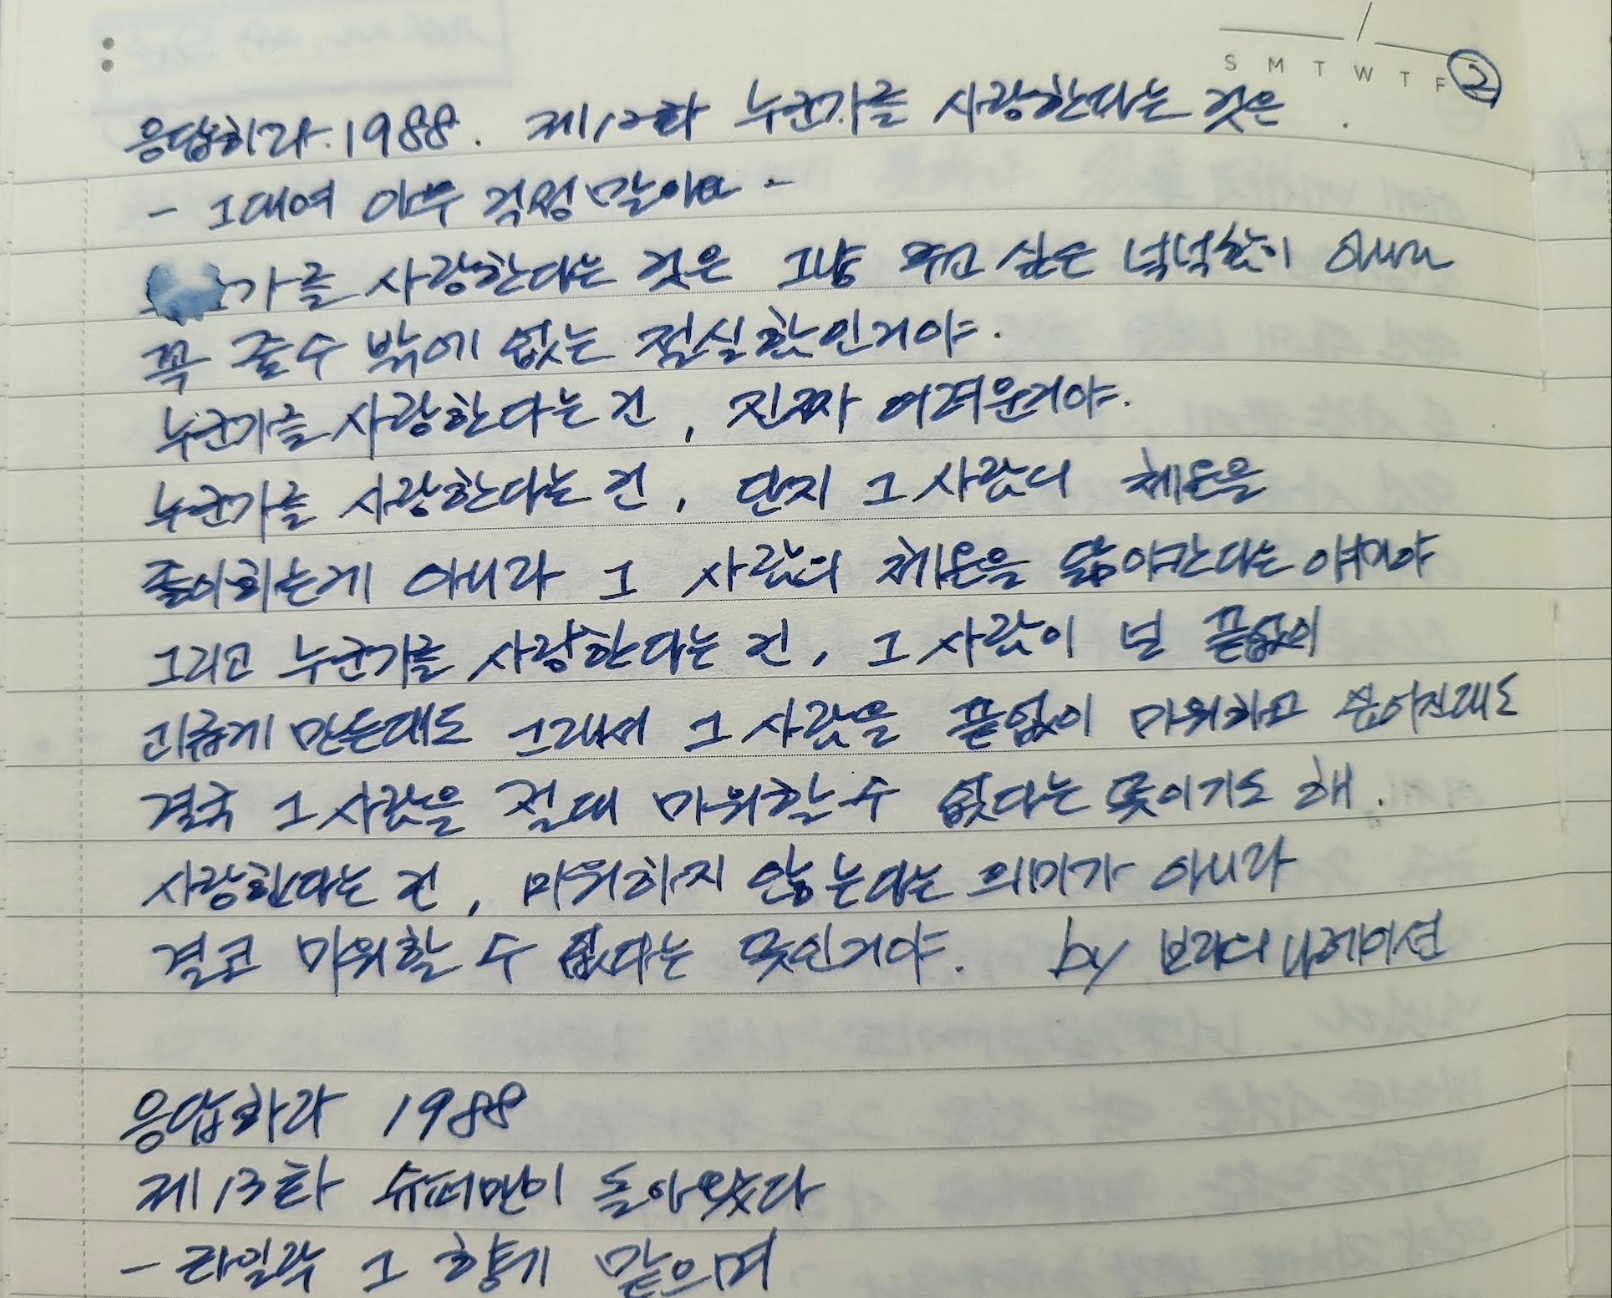 S M T W T F ②
응답하라. 1988. 제12화 누군가를 사랑한다는 것은
- 그대여 아무 걱정 말아요 -
가를 사랑한다는 것은 그냥 주고 싶은 넉넉함이 아니라
꼭 줄수 밖에 없는 절실함인거야.
누군가를 사랑한다는 건, 진짜 어려운거야.
누군가를 사랑한다는 건, 단지 그 사람의 체온을
좋아하는게 아니라 그 사람의 체온을 닮아간다는 얘기야
그리고 누군가를 사랑한다는 건, 그 사람이 널 끝없이
괴롭게 만든대도 그래서 그 사람을 끝없이 미워하고 싶어진대도
결국 그 사람을 절대 미워할 수 없다는 뜻이기도 해.
사랑한다는 건, 미워하지 않는다는 의미가 아니라
결코 미워할 수 없다는 뜻인거야. by 보라의 나레이션
응답하라 1988
제13화 슈퍼맨이 돌아왔다
- 라일락 그 향기 맡으며